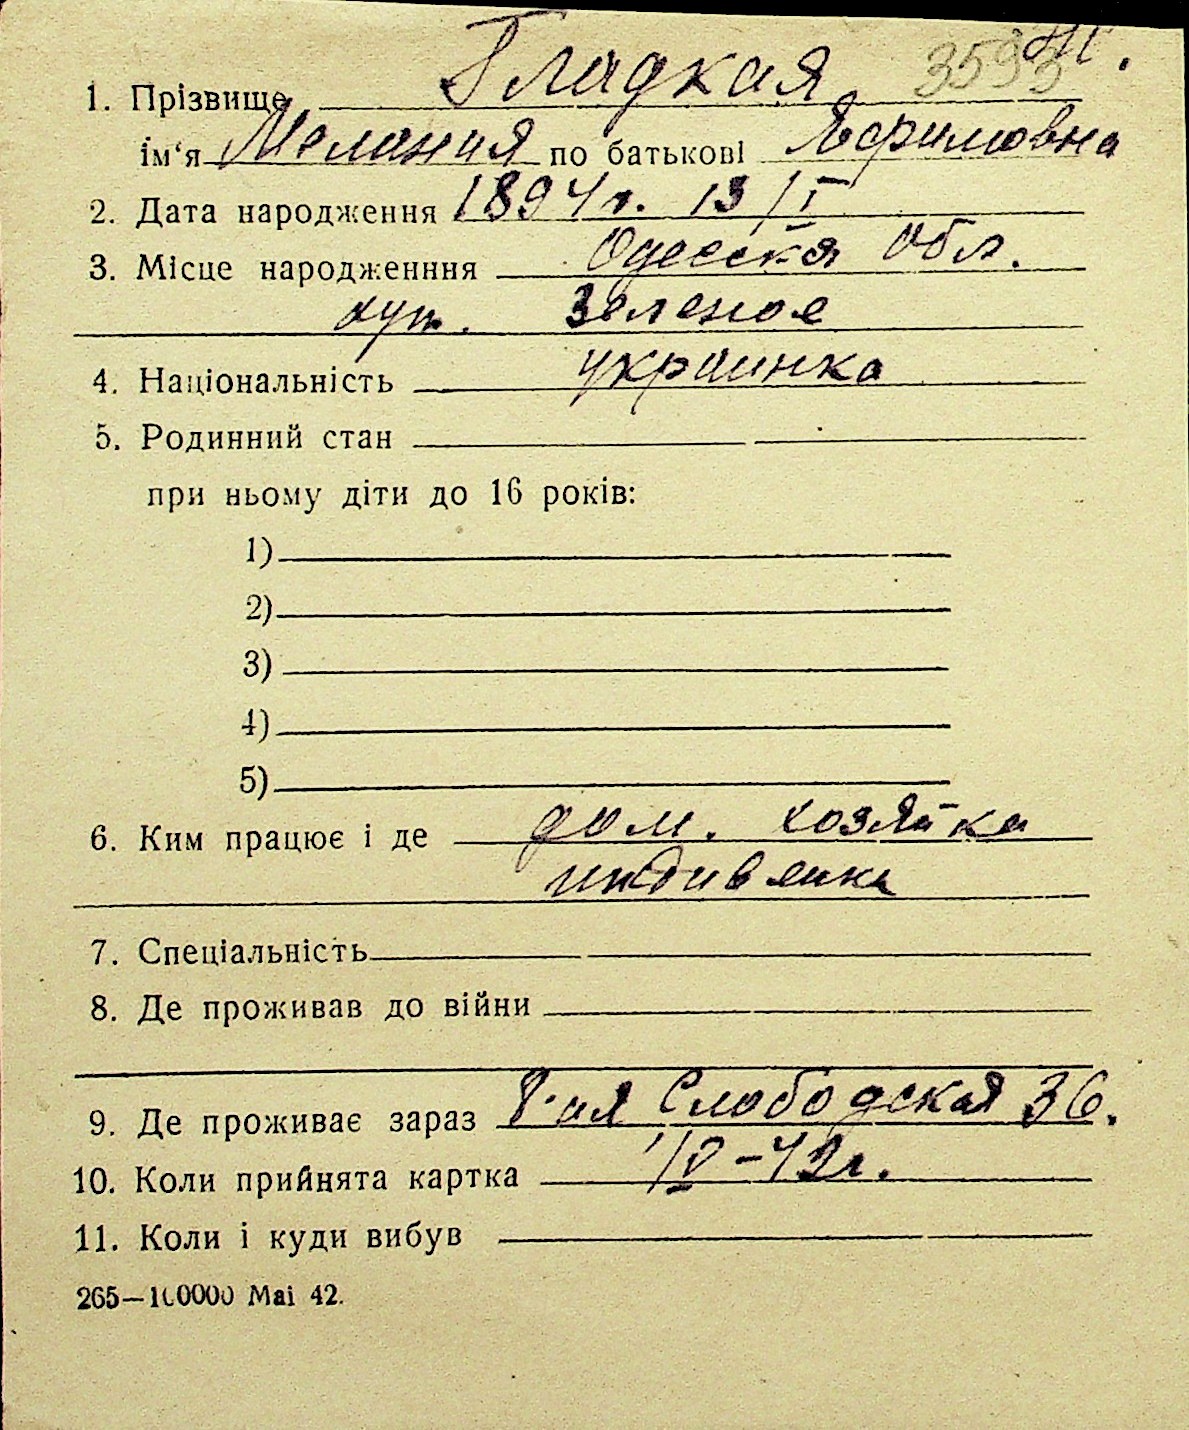 1. Прізвище Гладкая 3593
ім'я Мелания по батькові Ефимовна
2. Дата народження 1894 г. 13/I
3. Місце народженння Одесская обл.
хут. Зеленое
4. Національність украинка
5. Родинний стан
при ньому діти до 16 років:
1)
2)
3)
4)
5)
6. Ким працює і де дом. хозяйка
7. Спеціальність
8. Де проживав до війни
9. Де проживає зараз 8-ая Слободская 36.
10. Коли прийнята картка 1/V-42г.
11. Коли і куди вибув
265—100000 Mai 42.